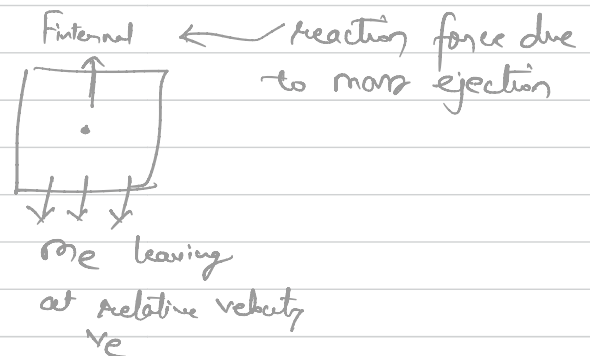 Finternal
reaction force due
to mass ejection
me leaving
at relative velocity
ve